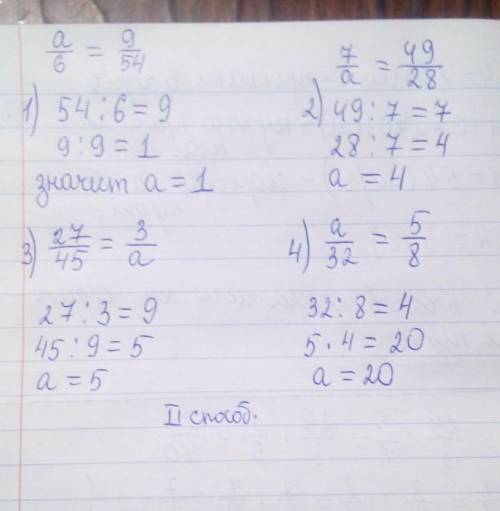 a/6 = 9/54
1) 54 : 6 = 9
9 : 9 = 1
значит a = 1
7/a = 49/28
2) 49 : 7 = 7
28 : 7 = 4
a = 4
3) 27/45 = 3/a
27 : 3 = 9
45 : 9 = 5
a = 5
4) a/32 = 5/8
32 : 8 = 4
5 · 4 = 20
a = 20
II способ.